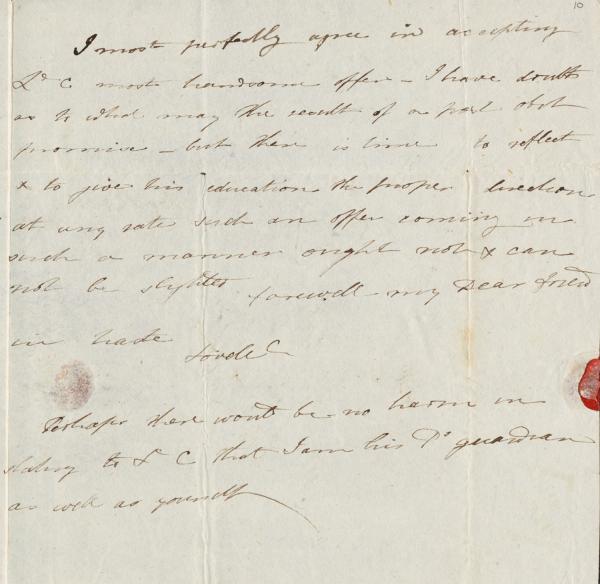 10
I most perfectly agree in accepting
Ld C most handsome offer – I have doubts
as to what may the result of a post obit
promise – but there is time to reflect
& to give his education the proper direction
at any rate such an offer coming in
such a manner ought not & can
not be slighted farewell – my Dear friend
in haste
Perhaps there wont be no harm in
stating to Ld C that I am his guardian
as well as yourself